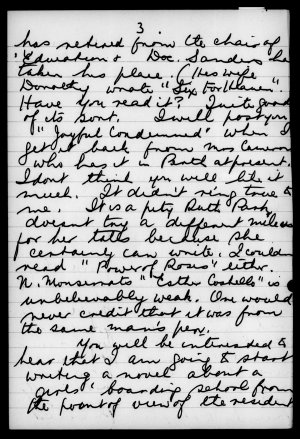 3
has retired from the chair of
Education & Doc. Sanders has
taken his place. (His wife
Dorothy wrote "Six For Heaven".
Have you read it? Quite good
of its sort. I will post you
"Joyful Condemned" when I
get it back from Mrs Cameron
who has it in Perth at present.
I dont think you will like it
much. It didn't ring true to
me. It is a pity Ruth Park
doesnt try a different milieu
for her talks because she
certainly can write. I couldn't
read "Power of Roses" either.
N. Monserrats "Esther Costello" is
unbelievably weak. One would
never credit that it was from
the same man's pen.
You will be interested to
hear that I am going to start
writing a novel about a
girls' boarding school from
the point of view of the resident